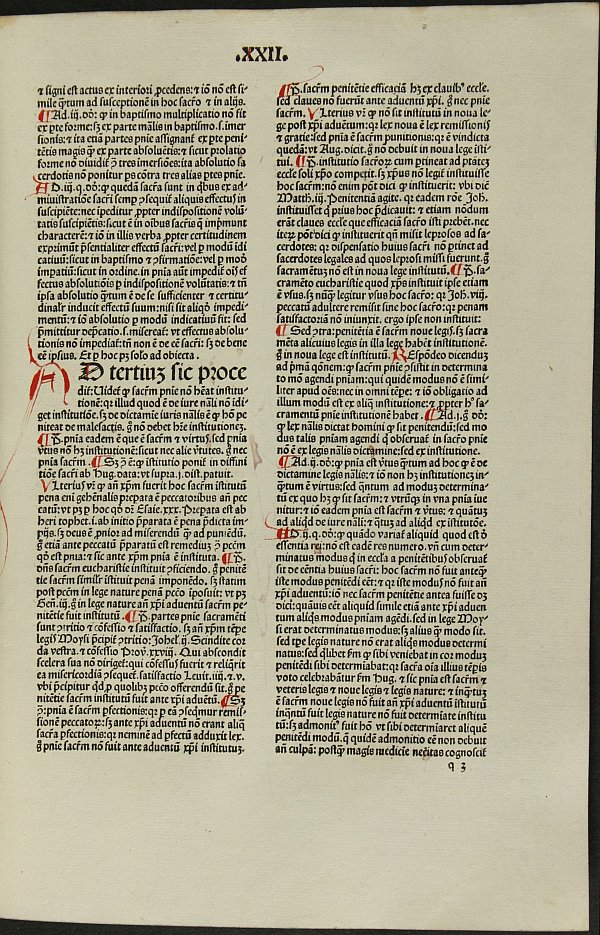 .XXII.
⁊ signi est actus ex interiori ꝓcedens: ⁊ iō nō est si-
mile q̄tum ad susceptionē in hoc sacr̄o ⁊ in alijs.
¶ Ad .iij. dō: ꝙ in baptismo multiplicatio nō fit
ex ꝑte forme: sꝫ ex parte mālis in baptismo .s. imer
sionis: ⁊ ita etiā partes pnīe assignant̄ ex ꝑte peni-
tētis magis ꝙ̄ ex parte absoluētis: ⁊ sicut prolatio
forme nō diuidit̄ ꝑ tres imersiōes: ita absolutio sa
cerdotis nō ponitur ꝑs cōtra tres alias ꝑtes pnīe.
Ad .iiij. q. dō: ꝙ quedā sacr̄a sunt in q̄bus ex ad-
ministratiōe sacr̄i semꝑ ꝯsequit̄ aliquis effectus in
suscipiēte: nec īpeditur ꝓpter indispositionē volū-
tatis suscipiētis: sicut ē in oībus sacr̄is q̄ imp̄munt
characterē: ⁊ iō in illis verba ꝓpter certitudinem
exprimūt p̄sentialiter effectū sacr̄i: vel ꝑ modū īdi
catiuū: sicut in baptismo ⁊ ꝯfirmatiōe: vel ꝑ modū
impatiuū: sicut in ordine. in pnīa aūt impedit̄ oīs ef
fectus absolutiōis ꝑ indispositionē volūtatis: ⁊ tn̄
ipsa absolutio q̄tum ē de se sufficienter ⁊ certitu-
dinalr̄ inducit effectū suum: nisi sit aliqd̄ impedi-
mentū: ⁊ iō absolutio ꝑ modū indicatiuū fit: sed
p̄mittitur dep̄catio .s. misereat̄: vt effectus absolu-
tionis nō impediat̄: tn̄ non ē de eē sacr̄i: sꝫ de bene
eē ipsius. Et ꝑ hoc pꝫ solō ad obiecta.
AD tertiuꝫ sic proce
dit̄: Uidet̄ ꝙ sacr̄m pnīe nō hēat institu-
tionē: qꝛ illud quod ē de iure nāli nō īdi-
get institutiōe. sꝫ de dictamīe iuris nālis ē ꝙ hō pe
niteat de malefactis. g̊ nō debet hr̄e institutionēꝫ.
¶ P̄. pnīa eadem ē que ē sacr̄m ⁊ virtus. sed pnīa
vtus nō hꝫ institutionē: sicut nec alie v̄tutes. g̊ nec
pnīa sacr̄m. ¶ Sꝫ ꝯ̄ ē: ꝙ īstitutio ponit̄ in diffini
tiōe sacr̄i ab Hug. data: vt supra .j. dist. patuit.
Ulteriꝰ vr̄ ꝙ an̄ xp̄m fuerit hoc sacr̄m īstitutū
pena eni gehēnalis preparata ē peccatoribus an̄ pec
catū: vt pꝫ ꝑ hoc qd̄ dr̄ Esaie .xxx. Preparata est ab
heri tophet .i. ab initio p̄parata ē pena p̄dicta im-
pijs. sꝫ deus ē ꝓnior ad miserendū ꝙ̄ ad puniēdū.
g̊ etiā ante peccatū p̄paratū est remediuꝫ ꝯ̄ pccm̄
qd̄ est pnīa: ⁊ sic ante xp̄m pnīa ē instituta. ¶ P̄.
dn̄s sacr̄m eucharistie instituit ꝑficiendo. g̊ penitē
tie sacr̄m similr̄ īstituit penā imponēdo. sꝫ statim
post pccm̄ in lege nature penā pccō īposuit: vt pꝫ
Gen̄ .iij. g̊ in lege nature an̄ xp̄i aduentū sacr̄m pe-
nitētie fuit institutū. ¶ P̄. partes pnīe sacramēti
sunt ꝯtritio ⁊ cōfessio ⁊ satisfactio. sꝫ an̄ xp̄m tꝑe
legis Moysi p̄cipit̄ ꝯtritio: Johel' .ij. Scindite cor
da vestra. ⁊ cōfessio Prou. xxviij. Qui abscondit
scelera sua nō diriget̄: qui cōfessus fuerit ⁊ reliq̄rit
ea misericordiā ꝯsequet̄. satisfactio Leuit .iiij. ⁊ .v.
vbi p̄cipitur qd̄ ꝓ quolibꝫ pccō offerendū sit. g̊ pe-
nitētie sacr̄m institutū fuit ante xp̄i aduētū. ¶ Sꝫ
ꝯ̄: pnīa ē sacr̄m ꝑfectionis: qꝛ ꝑ eā ꝯsedmur remis-
sionē peccatorꝫ: sꝫ ante xp̄i aduentū nō erant aliq̄
sacr̄a ꝑfectionis: qꝛ neminē ad ꝑfectū adduxit lex.
g̊ pnīe sacr̄m nō fuit ante aduentū xp̄i institutuꝫ.
¶ P̄. sacr̄m penitētie efficaciā hꝫ ex clauibꝰ eccle.
sed claues nō fuerūt ante aduentū xp̄i. g̊ nec pnīe
sacr̄m. Ulterius vr̄ ꝙ nō sit institutū in noua le-
ge post xp̄i aduētum: qꝛ lex noua ē lex remissionis
⁊ gratie: sed pnīa ē sacr̄m punitionis: qꝛ ē vindicta
quedā: vt Aug. dicit. g̊ nō debuit in noua lege īsti-
tui. ¶ P̄. institutio sacr̄orꝫ cum ꝑtineat ad ptātēꝫ
eccle soli xp̄o competit. sꝫ xp̄us nō legit̄ instituisse
hoc sacr̄m: nō enim pōt dici ꝙ instituerit: vbi dic̄
Matth. iij. Penitentiā agite. qꝛ eadem rōe Joh.
instituisset qd̄ prius hoc p̄dicauit: ⁊ etiam nōdum
erāt claues eccle que efficaciā sacr̄o isti p̄bēt. nec
iteꝝ pōt dici ꝙ instituerit qn̄ misit leprosos ad sa-
cerdotes: qꝛ dispensatio huius sacr̄i nō ꝑtinet ad
sacerdotes legales ad quos leprosi missi fuerunt. g̊
sacramētuꝫ nō est in noua lege institutū. ¶ P̄. sa-
cramēto eucharistie quod xp̄us instituit ipse etiam
ē vsus. sꝫ nunq̄ legitur vsus hoc sacr̄o: qꝛ Joh. viij.
peccatū adultere remisit sine hoc sacr̄o: qꝛ penam
satisfactoriā nō iniunxit. ergo ipse non instituit:
¶ Sed ꝯtra: penitētia ē sacr̄m noue legis. sꝫ sacra
mēta alicuius legis in illa lege habēt institutionē.
g̊ in noua lege est institutū. Respōdeo dicenduꝫ
ad p̄mā q̄onem: ꝙ sacr̄m pnīe ꝯsistit in determina
to mō agendi pnīam: qui quidē modus nō ē simi-
liter apud oēs: nec in omni tꝑe: ⁊ iō obligatio ad
illum modū est ex institutione: ⁊ ꝓpter hꝰ sa-
cramentū pnīe institutionē habet. ¶ Ad .i. g̊ dō:
ꝙ lex nālis dictat homini ꝙ sit penitendū: sed mo
dus talis pniam agendi qd̄ obseruat̄ in sacr̄o pnīe
nō ē ex legis nālis dictamine: sed ex institutione.
¶ Ad .ij. dō: ꝙ pnīa est v̄tus q̄ntum ad hoc ꝙ ē de
dictamine legis nālis: ⁊ iō non hꝫ institutioneꝫ in-
q̄ntum ē virtus: sed q̄ntum ad moduꝫ determina-
tū ex quo hꝫ ꝙ sit sacr̄m: ⁊ vtrūqꝫ in vna pnīa īue
nitur: ⁊ iō eadem pnīa est sacr̄m ⁊ v̄tus: ⁊ quātuꝫ
ad aliqd̄ de iure nāli: ⁊ q̄tuꝫ ad aliqd̄ ex istitutōe.
Ad .ij. q. dō: ꝙ quādo variat̄ aliquid quod est d̄
essentia rei: nō est eadē res numero. vn̄ cum deter-
minatus modus q̄ in eccl̄a a penitētibus obseruat̄
sit de eēntia huius sacr̄i: hoc sacr̄m nō fuit anteq̄ꝫ
iste modus penitēdi eēt: ⁊ qꝛ iste modus nō fuit an̄
xp̄i aduentū: iō nec sacr̄m penitētie antea fuisse dꝫ
dici: quāuis eēt aliquid simile etiā ante xp̄i aduen
tum aliqꝫ modus pniam agēdi. sed in lege Moy-
si erat determinatus modus: sꝫ alius ꝙ̄ modo sit.
sed tꝑe legis nature nō erat aliqds modus determi
natus: sed qlibet fm ꝙ sibi veniebat in cor moduꝫ
penitēdi sibi determiabat: qꝛ sacr̄a oīa illius tēpis
voto celebrabāt̄ fm Hug. ⁊ sic pnīa est sacr̄m ⁊
veteris legis ⁊ noue legis ⁊ legis nature: ⁊ inq̄ntuꝫ
ē sacr̄m noue legis nō fuit an̄ xp̄i aduentū īstitutū
inq̄ntū fuit legis nature nō fuit determiate institu
tū: sꝫ admonitꝰ fuit hō vt sibi determiaret aliquē
penitēdi modū. q̄ quidē admonitio eē non debuit
an̄ culpā: postꝙ̄ magis medicine neccitas cognoscit̄
q 3